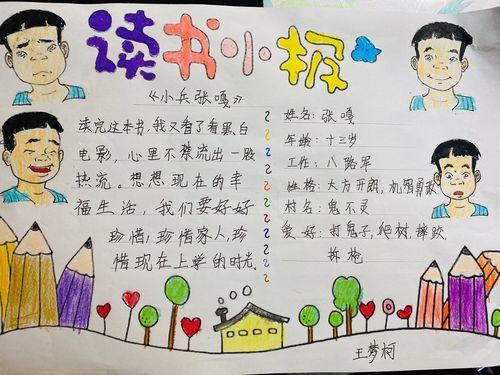 读书小报
《小兵张嘎》
读完这本书,我又看了看黑白
电影,心里不禁流出一股
热流。想想现在的幸
福生活,我们要好好
珍惜,珍惜家人,珍
惜现在上学的时光.
姓名:张嘎
年龄:十三岁
工作:八路军
性格:大方开朗,机智勇敢
村名:鬼不灵
爱好:打鬼子,爬树,摔跤,
拆枪
王梦柯